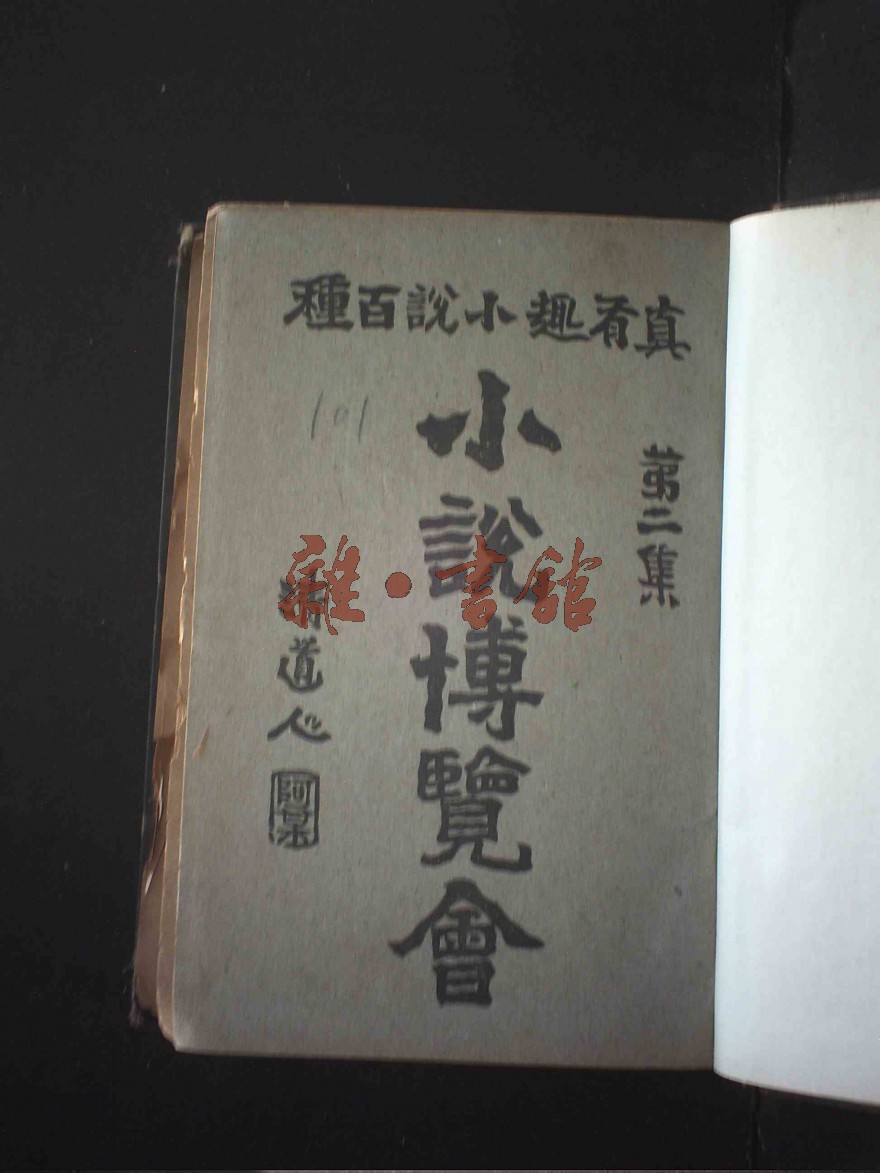 真有趣小說百種
第二集
小說博覽會
101
道人
雜·書館